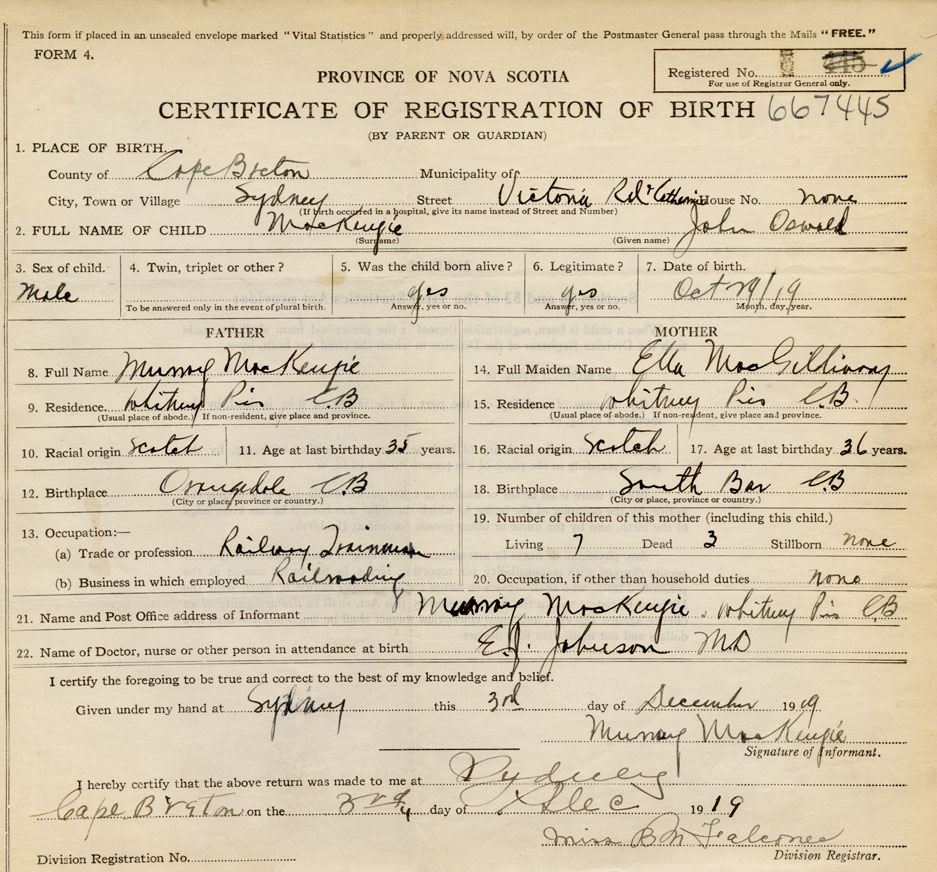 This form if placed in an unsealed envelope marked "Vital Statistics" and properly addressed will, by order of the Postmaster General pass through the Mails "FREE."
FORM 4.
Registered No. 445
For use of Registrar General only.
PROVINCE OF NOVA SCOTIA
CERTIFICATE OF REGISTRATION OF BIRTH 667445
(BY PARENT OR GUARDIAN)
1. PLACE OF BIRTH.
County of Cape Breton Municipality of
City, Town or Village Sydney Street Victoria Rd & Catherine House No. none
(If birth occurred in a hospital, give its name instead of Street and Number)
2. FULL NAME OF CHILD MacKenzie John Oswald
(Surname) (Given name)
3. Sex of child. 4. Twin, triplet or other? 5. Was the child born alive? 6. Legitimate? 7. Date of birth.
Male yes yes Oct 29/19
To be answered only in the event of plural birth. Answer, yes or no. Answer, yes or no. Month, day, year.
FATHER MOTHER
8. Full Name Murray MacKenzie 14. Full Maiden Name Ella MacGillivray
9. Residence Whitney Pier C.B 15. Residence Whitney Pier C.B.
(Usual place of abode.) If non-resident, give place and province. (Usual place of abode.) If non-resident, give place and province.
10. Racial origin Scotch 11. Age at last birthday 35 years. 16. Racial origin Scotch 17. Age at last birthday 36 years.
12. Birthplace Orangedale C.B 18. Birthplace South Bar C.B
(City or place, province or country.) (City or place, province or country.)
13. Occupation:— 19. Number of children of this mother (including this child.)
(a) Trade or profession Railway Trainman Living 7 Dead 3 Stillborn none
(b) Business in which employed Railroading 20. Occupation, if other than household duties none
21. Name and Post Office address of Informant Murray MacKenzie. Whitney Pier C.B
22. Name of Doctor, nurse or other person in attendance at birth E.J. Johnson MD
I certify the foregoing to be true and correct to the best of my knowledge and belief.
Given under my hand at Sydney this 3rd day of December 1919
Murray MacKenzie
Signature of Informant.
I hereby certify that the above return was made to me at Sydney
Cape Breton on the 3rd day of Dec 1919
Miss B M Falconer
Division Registration No. Division Registrar.